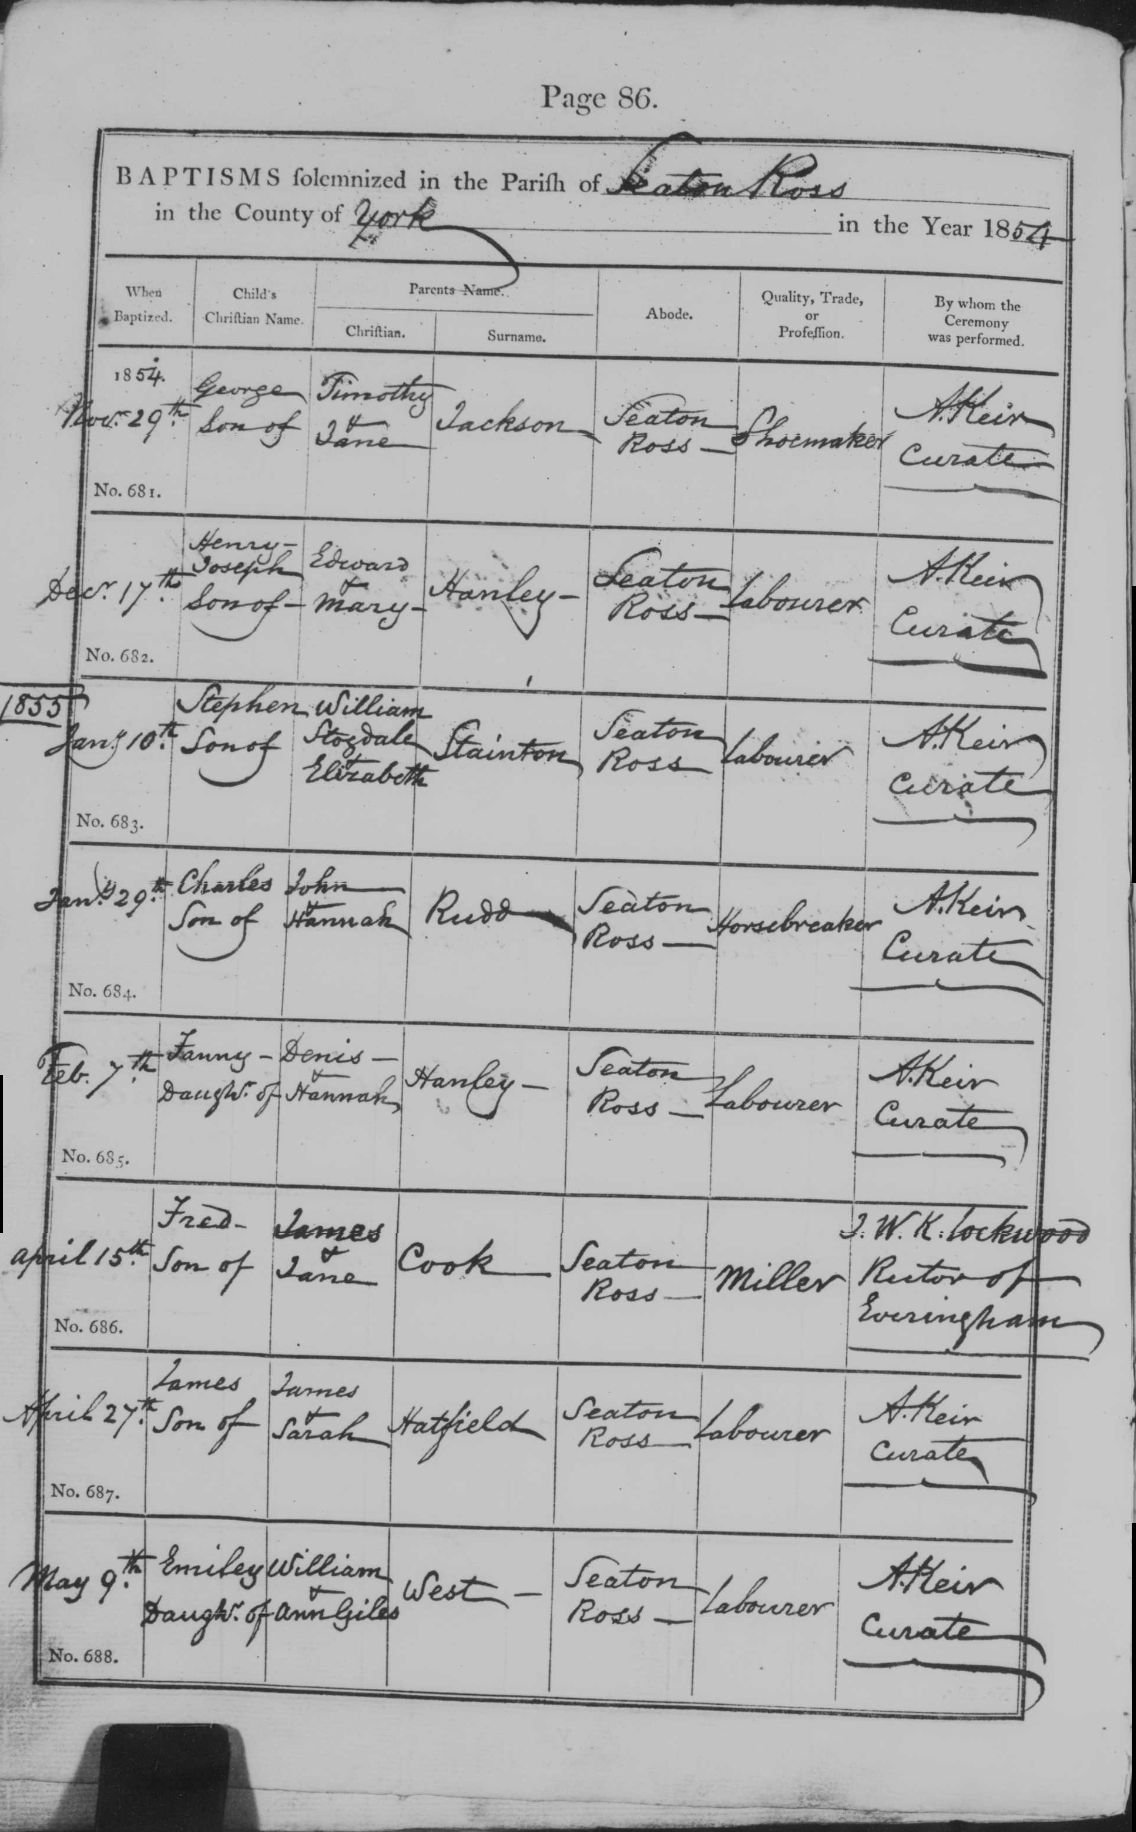 Page 86.
BAPTISMS solemnized in the Parish of Seaton Ross
in the County of York in the Year 1854
When Baptized.
Child's Christian Name.
Parents Name.
Christian.
Surname.
Abode.
Quality, Trade, or Profession.
By whom the Ceremony was performed.
1854.
Novr. 29th.
No. 681.
George
Son of
Timothy
&
Jane
Jackson
Seaton
Ross
Shoemaker
A. Keir
Curate
Decr. 17th.
No. 682.
Henry-
Joseph
Son of-
Edward
&
Mary-
Hanley-
Seaton
Ross
Labourer
A. Keir
Curate
1855
Jany 10th.
No. 683.
Stephen
Son of
William
Stogdale
&
Elizabeth
Stainton
Seaton
Ross
Labourer
A. Keir
Curate
Jany 29th.
No. 684.
Charles
Son of
John
&
Hannah
Rudd
Seaton
Ross
Horsebreaker
A. Keir
Curate
Feb. 7th.
No. 685.
Fanny-
Daughr. of
Denis-
&
Hannah
Hanley-
Seaton
Ross
Labourer
A. Keir
Curate
April 15th.
No. 686.
Fred-
Son of
James
&
Jane
Cook
Seaton
Ross
Miller
J. W. K. Lockwood
Rector of
Everingham
April 27th.
No. 687.
James
Son of
James
&
Sarah
Hatfield
Seaton
Ross
Labourer
A. Keir
Curate
May 9th.
No. 688.
Emiley
Daughr. of
William
&
Ann Giles
West-
Seaton
Ross
Labourer
A. Keir
Curate